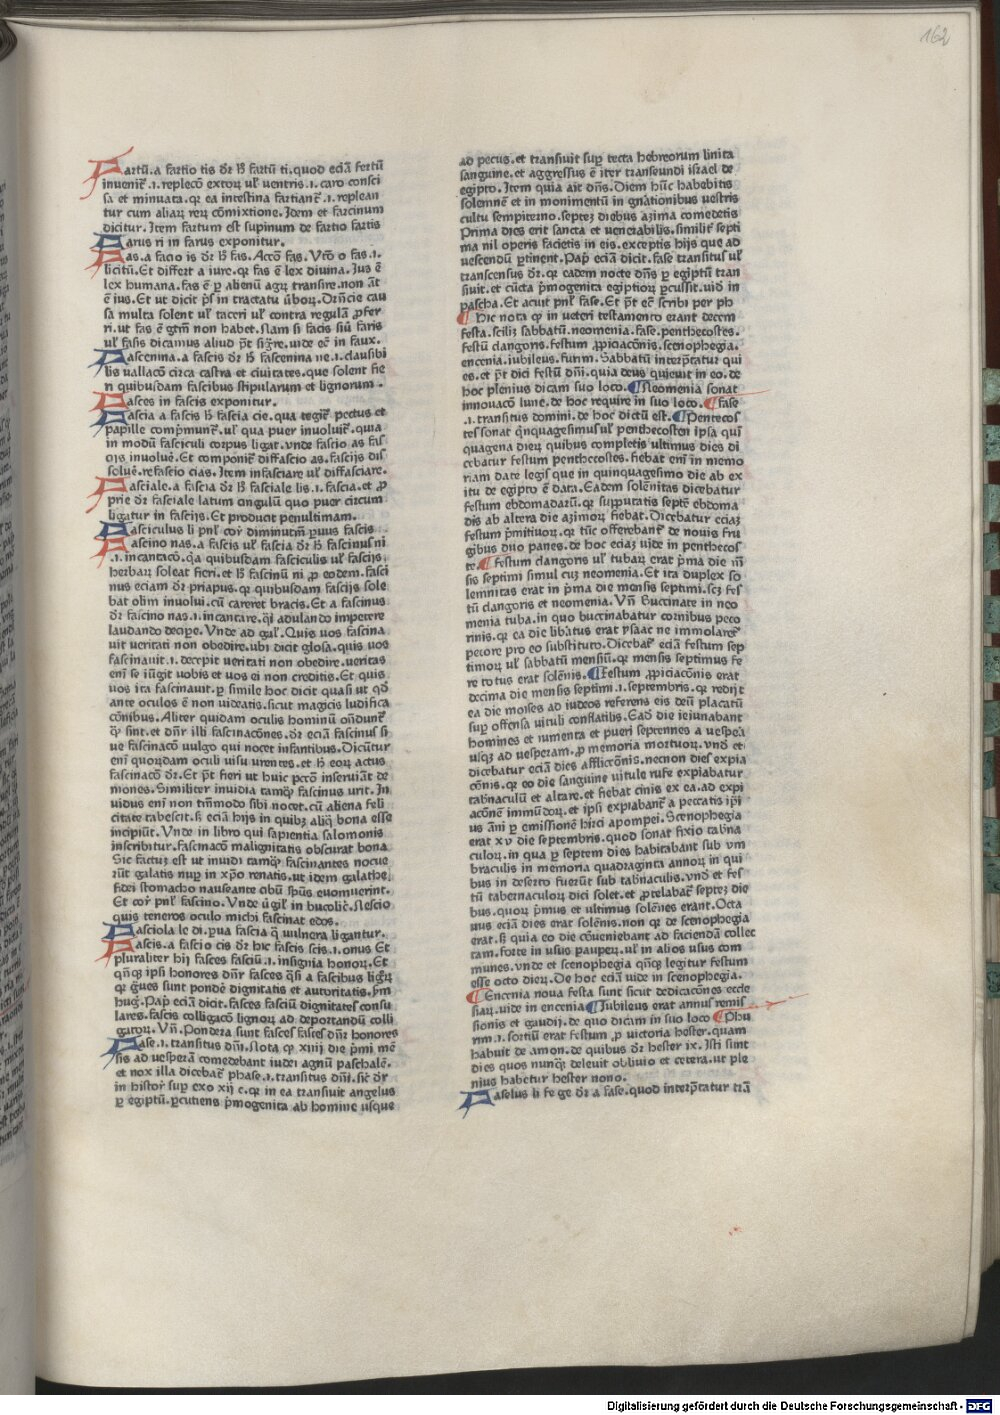 162
Fartū.a fartio tis dr̄ hº fartū ti.quod eciā fertū
inuenit̄.i.repleco extoꝝ ul' uentris.i.caro consci
sa et minuata.qꝫ ea intestina fartiant̄.i.replean
tur cum aliaꝝ reꝝ cōmixtione. Idem et farcinum
dicitur. Item fartum est supinum de fartio fartis
Farus ri in farus exponitur.
Fas.a facio is dr̄ hº fas. Accō fas. Vtro o fas.i.
licitū. Et differt a iure.qꝫ fas ē lex diuina. Jus ē
lex humana. fas ē ꝑ alienū agꝝ transire. non āt
ē ius. Et ut dicit pr̄s in tractatu ūboꝝ. Drn̄cie cau
sa multa solent ul' taceri ul' contra regulā ꝓfer
ri. ut fas ē gtm̄ non habet. Nam si facis siū faris
ul' fasis dicamus aliud pōt sigr̄e. uide eē in faux.
Fascenina.a fascis dr̄ hº fascenina ne.i.clausibi
lis uallacō circa castra et ciuitates.que solent fie
ri quibusdam fascibus stipularum et lignorum.
Fasces in fascis exponitur.
Fascia a fascis hº fascia cie.qua tegit̄ pectus et
papille comp̄munt̄.ul' qua puer inuoluit̄.quia
in modū fasciculi corpus ligat. vnde fascio as fas
cijs inuoluē. Et componit̄ diffascio as.fascijs dis
soluē.refascio cias. Item infasciare ul' diffasciare.
Fasciale.a fascia dr̄ hº fasciale lis.i.fascia.et ꝓ
prie dr̄ fasciale latum cingulū quo puer circum
ligatur in fascijs. Et producit penultimam.
Fasciculus li pnl' cor̄ diminutm̄ ꝑuus fascis
Fascino nas.a fascis ul' fascia dr̄ hº fascinus ni
.i.incantacō.qa quibusdam fasciculis ul' fascijs
herbaꝝ soleat fieri.et hº fascinū ni ꝓ eodem. fasci
nus eciam dr̄ priapus.qꝫ quibusdam fascijs sole
bat olim inuolui.cū careret bracis. Et a fascinus
dr̄ fascino nas.i.incantare.qi adulando impetere
laudando decipe. Vnde ad gal'. Quis uos fascina
uit veritati non obedire.ubi dicit glosa.quis vos
fascinauit.i.decepit veritati non obedire.ueritas
enī se iūgit uobis et uos ei non creditis. Et quis
uos ita fascinauit.ꝑ simile hoc dicit quasi ut qd̄
ante oculos ē non uideatis.sicut magicis ludifica
cōnibus. Aliter quidam oculis hominū on̄dunt̄
q̄ sint.et dn̄r illi fascinacōnes. dr̄ eciā fascinus si
ue fascinacō uulgo qui nocet infantibus. Dicūtur
enī quorꝺam oculi uisu urentes.et hº eoꝝ actus
fascinacō dr̄. Et pōt fieri ut huic pccō inseruiāt de
mones. Similiter inuidia tamqꝫ fascinus urit. In
uidus enī non tn̄modo sibi nocet.cū aliena feli
citate tabescit.ß eciā hijs in quibꝫ aliqꝫ bona esse
incipiūt. Vnde in libro qui sapientia salomonis
inscribitur. fascinacō malignitatis obscurat bona
Sic factuꝫ est ut inuidi tamqꝫ fascinantes nocue
rūt galatis nuꝑ in xp̄o renatis.ut idem galathe
fidei stomacho nauseante cibū sp̄us euomuerint.
Et cor̄ pnl' fascino. Vnde ūgil' in bucolic̄. Nescio
quis teneros oculo michi fascinat edos.
Fasciola le di.ꝑua fascia q̄ uulnera ligantur.
Fascis.a fascio cis dr̄ hic fascis scis.i.onus Et
pluraliter hij fasces fasciū.i.insignia honoꝝ. Et
qn̄qꝫ ipsi honores dn̄r fasces q̄si a fascibus lignꝝ
qꝫ gues sunt pondē dignitatis et autoritatis.ꝑm
hug. Pap̄ eciā dicit. fasces fasciū dignitates consu
lares. fascis colligacō lignoꝝ ad deportandū colli
gatoꝝ. Vn̄. Pondera sunt fasces fasces dn̄r honores
Fase.i.transitus dn̄i. Nota qꝫ xiiij die p̄mi mē
sis ad uesperā comedebant iudei agnū paschalē.
et nox illa dicebat̄ phase.i.transitus dn̄i.sic̄ dr̄
in histor̄ suꝑ exo xij c.qꝫ in ea transiuit angelus
ꝑ egiptū.ꝑcutiens p̄mogenita ab homine usque
ad pecus.et transiuit suꝑ tecta hebreorum linita
sanguine.et aggressus ē iter transeundi israel de
egipto. Item quia ait dn̄s. Diem hūc habebitis
solemnē et in monimentū in gnātionibus uestris
cultu sempiterno.septeꝫ diebus azima comedetis
Prima dies erit sancta et uenerabilis.similit̄ septi
ma nil operis facietis in eis.exceptis hijs que ad
uescendū ꝑtinent. Pap̄ eciā dicit. fase transitus ul'
transcensus dr̄.qꝫ eadem nocte dn̄s ꝑ egiptū tran
siuit.et cūcta p̄mogenita egiptioꝝ ꝑcussit.uid̄ in
pascha. Et acuit pnl' fase. Et pōt eē scribi per ph
¶ Hic nota qꝫ in ueteri testamento erant decem
festa.scilicꝫ sabbatū.neomenia.fase.penthecostes.
festū clangoris.festum ꝓpiciacōnis.scenophegia.
encenia.iubileus.furim. Sabbatū interp̄tatur qui
es.et pōt dici festū dn̄i.quia deus quieuit in eo.de
hoc plenius dicam suo loco. ¶ Neomenia sonat
innouacō lune.de hoc require in suo loco. ¶ fase
.i.transitus domini.de hoc dictū est. ¶ Pentecos
tes sonat qn̄quagesimus ul' penthecosten ipsa quī
quagena dieꝝ quibus completis ultimus dies di
cebatur festum penthecostes. fiebat enī in memo
riam date legis que in quinquagesimo die ab ex
itu de egipto ē data. Eadem solēnitas dicebatur
festum ebdomadarū.qꝫ supputatis septē ebdoma
dis ab altera die azimoꝝ fiebat. Dicebatur eciaꝫ
festum p̄mitiuoꝝ.qꝫ tūc offerebant̄ de nouis fru
gibus duo panes.de hoc eciaꝫ uide in penthecos
te. ¶ festum clangoris ul' tubaꝝ erat p̄ma die m̄
sis septimi simul cuꝫ neomenia. Et ita duplex so
lemnitas erat in p̄ma die mensis septimi.scꝫ fes
tū clangoris et neomenia. Vn̄ Buccinate in neo
menia tuba.in quo buccinabatur cornibus peco
rinis.qꝫ ea die libātus erat ysaac ne immolaret̄
pecore pro eo substituto. Dicebat̄ eciā festum sep
timoꝝ ul' sabbatū mensiū.qꝫ mensis septimus fe
re totus erat solēnis. ¶ Festum ꝓpiciacōnis erat
decima die mensis septimi.i.septembris.qꝫ redijt
ea die moises ad iudeos referens eis deū placatū
suꝑ offensa uituli conflatilis. Ead̄ die ieiunabant
homines et iumenta et pueri septennes a uesꝑa
usqꝫ ad uesperam.ꝓ memoria mortuoꝝ.vnd̄ et
dicebatur eciā dies afflictōnis.necnon dies expia
cōnis.qꝫ eo die sanguine uitule rufe expiabatur
tab̄naculū et altare.et fiebat cinis ex ea.ad expi
acōnē immūdoꝝ.et ipsi expiabant̄ a peccatis ip̄i
us āni ꝑ emissionē hirci apompei. Scenophegia
erat xv die septembris.quod sonat fixio tab̄na
culoꝝ.in qua ꝑ septem dies habitabant sub vm
braculis in memoria quadraginta annoꝝ in qui
bus in deserto fuerūt sub tab̄naculis.vnd̄ et fes
tū tabernaculoꝝ dici solet.et ꝓtelabat̄ septeꝫ die
bus.quoꝝ p̄mus et ultimus solēnes erant. Octa
uus eciā dies erat solēnis.non qꝫ de scenophegia
erat.ß quia eo die cōueniebant ad faciendā collec
tam.forte in usus paupeꝝ.ul' in alios usus com
munes.vnde et scenophegia qn̄qꝫ legitur festum
esse octo dieꝝ. De hoc eciā uide in scenophegia.
¶ Encenia noua festa sunt sicut dedicacōnes eccle
siaꝝ.uide in encenia ¶ Iubileus erat annus remis
sionis et gaudij.de quo dicam in suo loco ¶ Phu
rim.i.sortiū erat festum ꝓ uictoria hester.quam
habuit de amon.de quibus dr̄ hester ix. Isti sunt
dies quos nunqꝫ deleuit obliuio et cetera.ut ple
nius habetur hester nono.
Faselus li fe ge dr̄ a fase.quod interp̄tatur trā
Digitalisierung gefördert durch die Deutsche Forschungsgemeinschaft - DFG